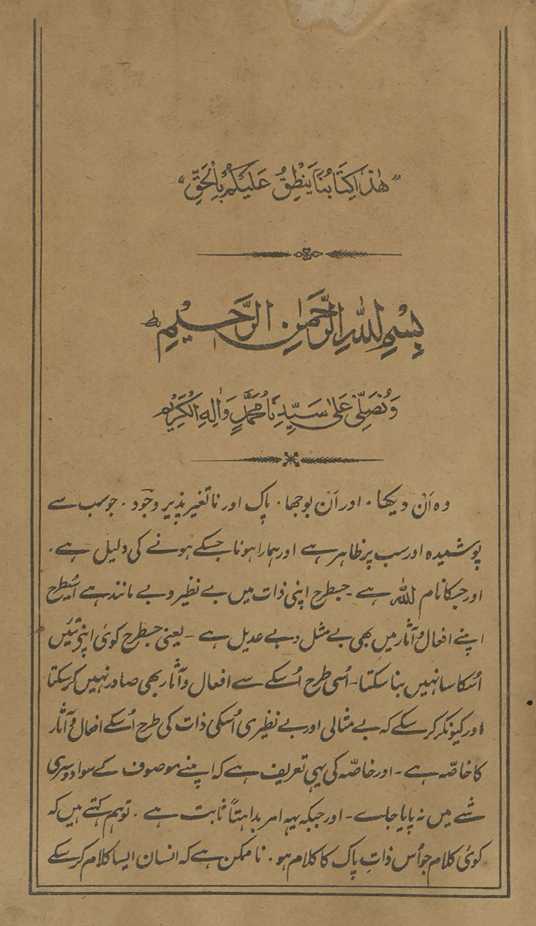 "هٰذَا كِتَابُنَا يَنْطِقُ عَلَيْكُمْ بِالْحَقِّ"
بِسْمِ اللهِ الرَّحْمٰنِ الرَّحِيْمِ ط
وَنُصَلِّیْ عَلٰی سَیِّدِنَا مُحَمَّدٍ وَّاٰلِهِ الْکَرِیْمِ
وہ اَن دیکھا۔ اور اَن بوجھا۔ پاک اور ناتغیر پذیر وجود۔ جو سب سے
پوشیدہ اور سب پر ظاہر ہے اور ہمارا ہونا جسکے ہونے کی دلیل ہے۔
اور جسکا نام اللہ ہے۔ جسطرح اپنی ذات میں بے نظیر و بے مانند ہے اُسیطرح
اپنے افعال و آثار میں بھی بے مثل و بے عدیل ہے۔ یعنی جسطرح کوئی اپنی تئیں
اُسکا سا نہیں بنا سکتا۔ اُسی طرح اُسکے سے افعال و آثار بھی صادر نہیں کر سکتا
اور کیونکر کر سکے کہ بے مثالی اور بے نظیری اُسکی ذات کی طرح اُسکے افعال و آثار
کا خاصّہ ہے۔ اور خاصّہ کی یہی تعریف ہے کہ اپنے موصوف کے سوا دوسری
شے میں نہ پایا جاے۔ اور جبکہ یہہ امر بداہتاً ثابت ہے۔ تو ہم کہتے ہیں کہ
کوئی کلام جو اُس ذاتِ پاک کا کلام ہو۔ ناممکن ہے کہ انسان ایسا کلام کر سکے